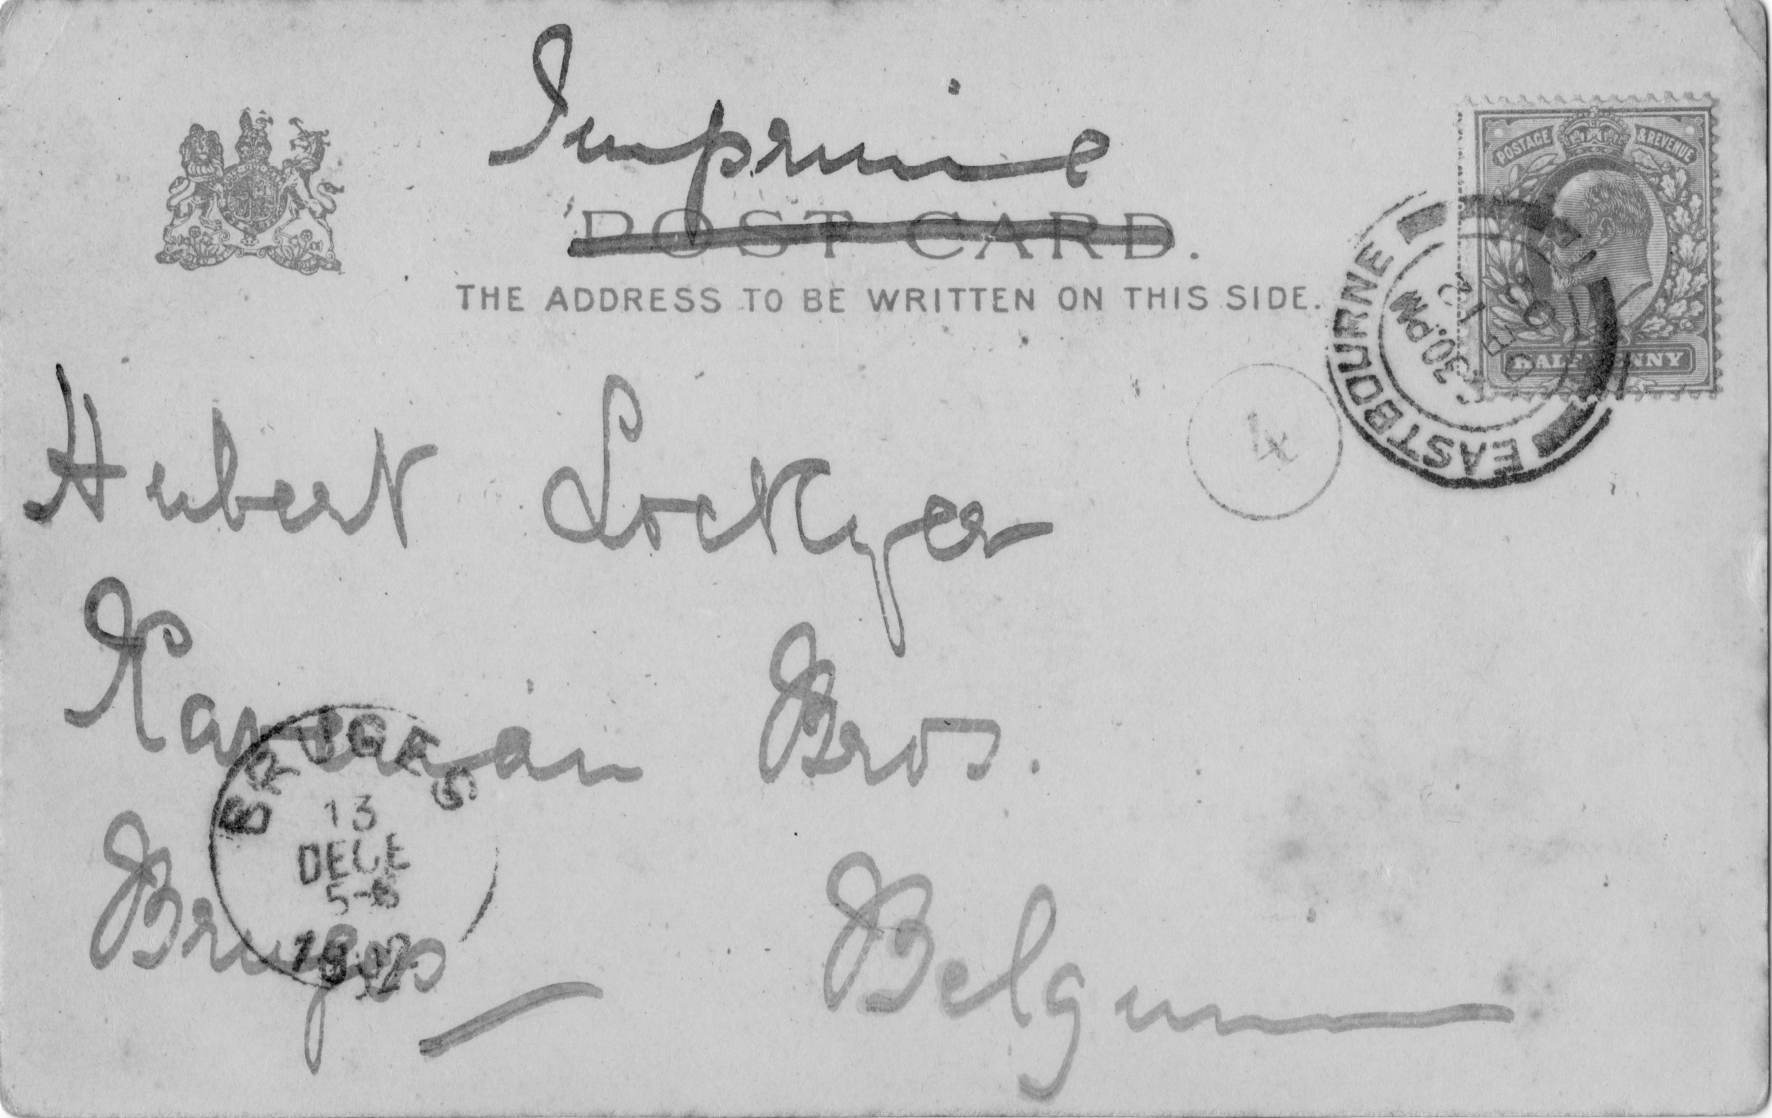 Imprimé
POST CARD.
THE ADDRESS TO BE WRITTEN ON THIS SIDE.
POSTAGE & REVENUE
HALF PENNY
EASTBOURNE
30.PM
4
Hubert Lockyer
Bros.
BRUGES
13
DECE
5-6
Bruges Belgium